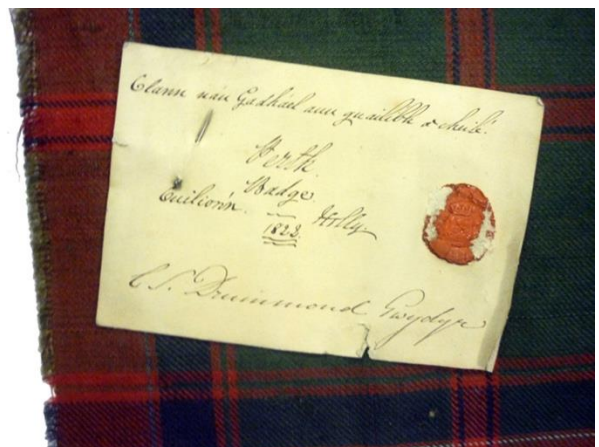 Clann nan Gadhael ann guaillibh a cheile.
Perth.
Badge.
Cuilionn. Holly
1822
C S. Drummond Gwydyr